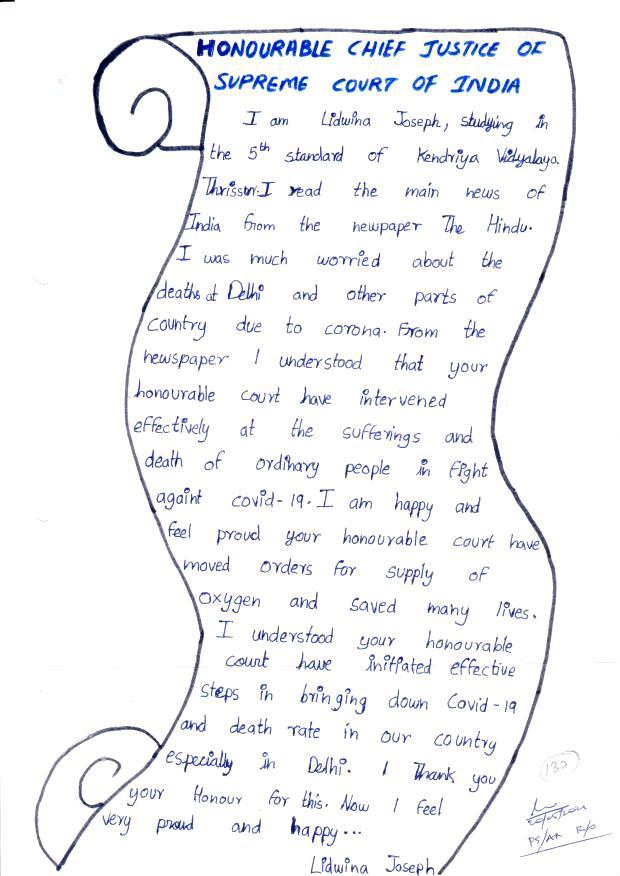 HONOURABLE CHIEF JUSTICE OF
SUPREME COURT OF INDIA
I am Lidwina Joseph, studying in
the 5th standard of Kendriya Vidyalaya
Thrissur. I read the main news of
India from the newpaper The Hindu.
I was much worried about the
deaths at Delhi and other parts of
country due to corona. From the
newspaper I understood that your
honourable court have intervened
effectively at the sufferings and
death of ordinary people in fight
againt covid-19. I am happy and
feel proud your honourable court have
moved orders for supply of
oxygen and saved many lives.
I understood your honourable
court have initiated effective
steps in bringing down Covid-19
and death rate in our country
especially in Delhi. I Thank you
your Honour for this. Now I feel
very proud and happy...
Lidwina Joseph
137
PS/AR R/o